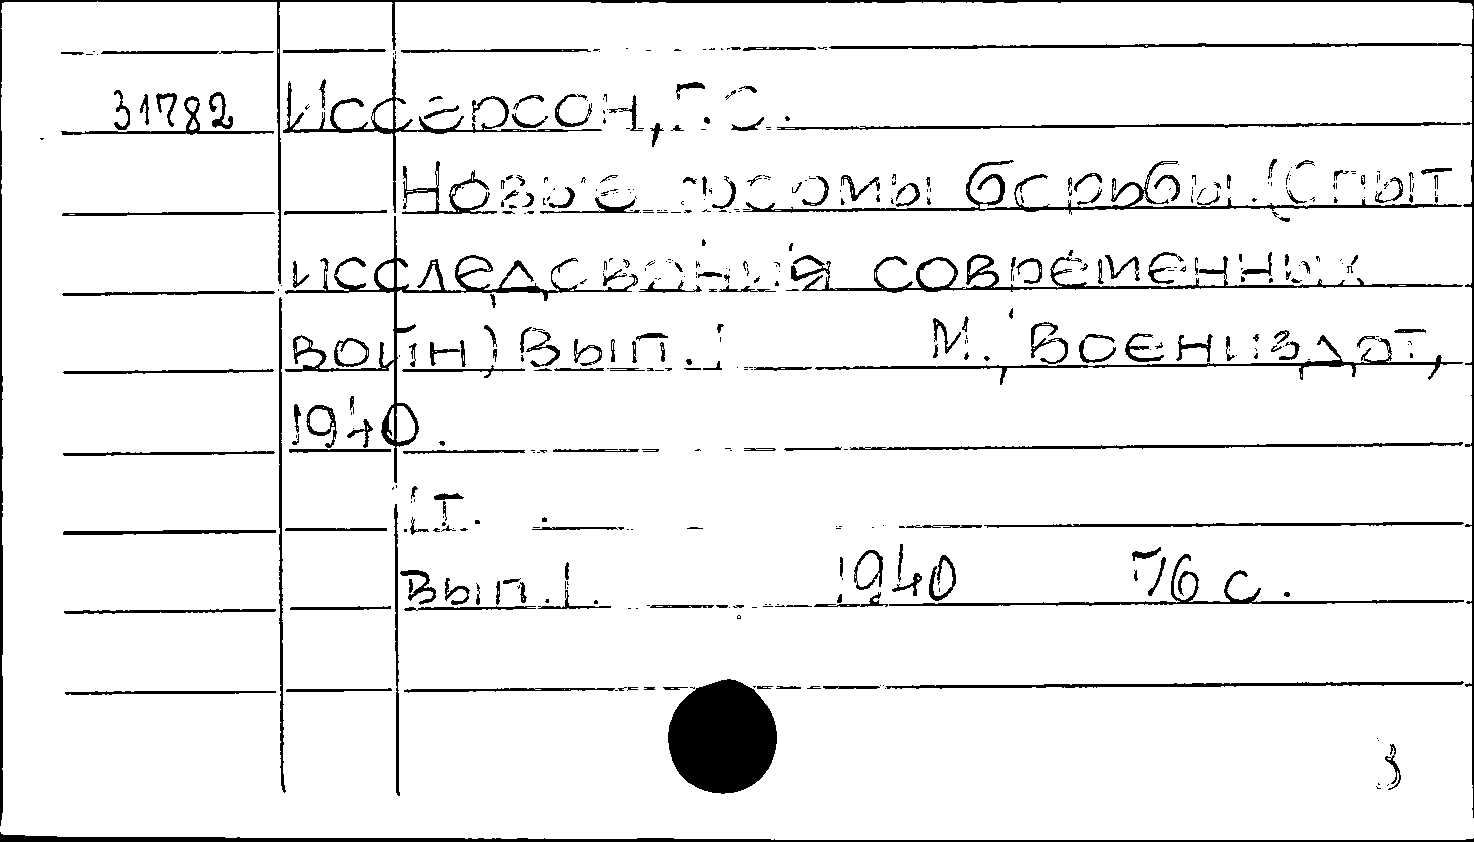 31782 Иссерсон, Г.С.
Новые формы борьбы. (Опыт
исследования современных
войн) Вып. 1 М., Воениздат,
1940.
1 т.
Вып. 1. 1940 76 с.
3